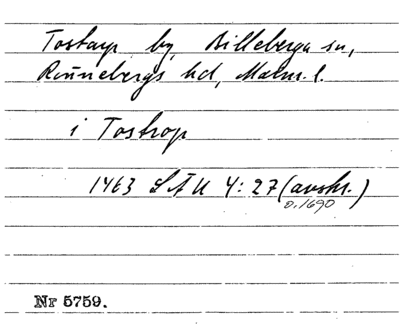 Tostarp by, Billeberga sn,
Rönnebergs hd, Malm. l.
i Tostrop
1463 LÄU 4:27 (avskr.)
o. 1690
Nr 5759.